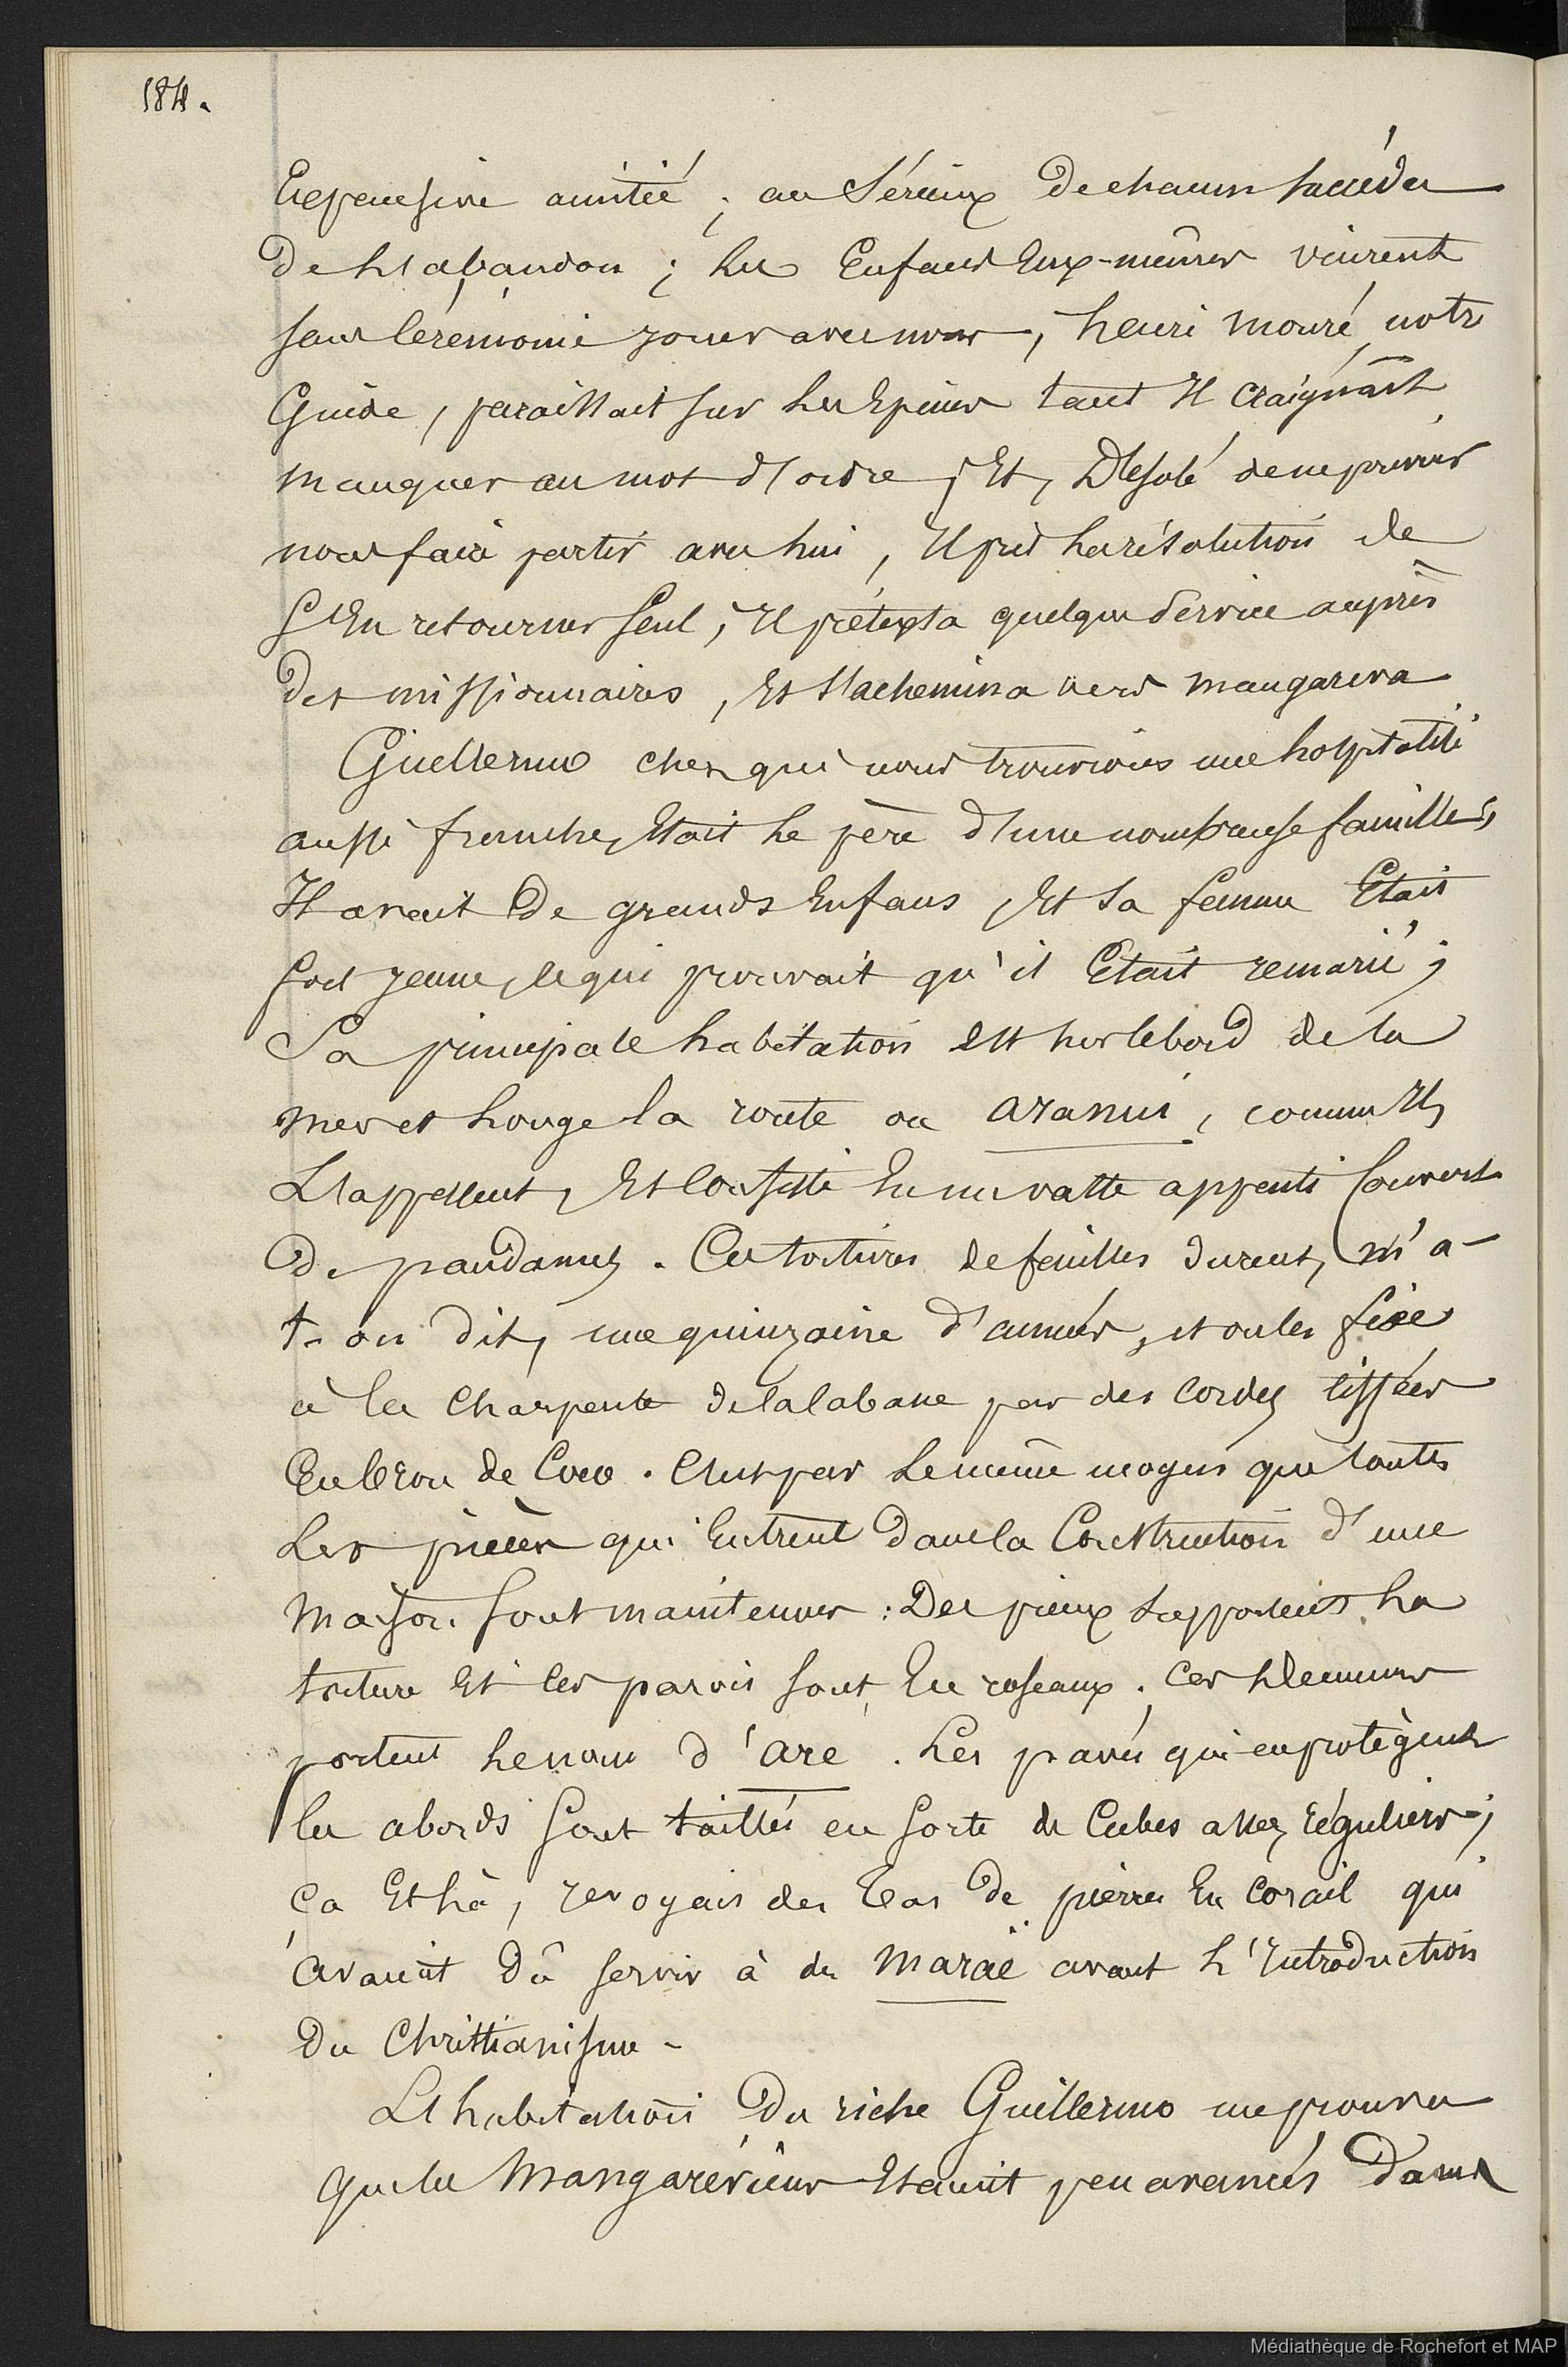 184.
Expansive amitié ; au Sérieux de chacun succéda
de l'abandon ; les Enfants Eux-mêmes vinrent
sans cérémonie jouer avec nous, henri mouré notre
Guide, paraissait sur les Epines tant Il craignait
manquer au mot d'ordre ; Et, Désolé de ne pouvoir
nous faire partir avec lui, Il prit la résolution de
s'En retourner seul ; Il prétexta quelque service auprès
des missionnaires, Et s'achemina vers mangareva
Guellermo chez qui nous trouvions une hospitalité
aussi franche, Etait le père d'une nombreuse famille,
Il avait De grands Enfans, Et sa femme Etait
fort jeune, ce qui prouvait qu'il Etait remarié ;
Sa principale habitation est sur le bord de la
mer et longe la route ou aranui, comme Ils
L'appellent, Et consiste En une vaste appenti couvert
de pandanus. Ces toitures de feuilles durent, m'a-
t-on dit, une quinzaine d'années, et on les fixe
à la Charpente de la cabane par des cordes tissées
En brou de Coco. C'est par le même moyen que toutes
Les pièces qui Entrent dans la Construction d'une
maison sont maintenues : Des pieux supportent la
toiture Et les parois sont En roseaux. Ces demeures
portent le nom d'are. Les pavés qui en protègent
les abords sont taillés en sorte de Cubes assez réguliers ;
Ça Et là, je voyais des tas de pierres En Corail qui
avaient Dû servir à des maraë avant L'Introduction
Du Christianisme -
L'habitation Du riche Guillermo me prouva
que les Mangaréviens Etaient peu avancés Dans
Médiathèque de Rochefort et MAP